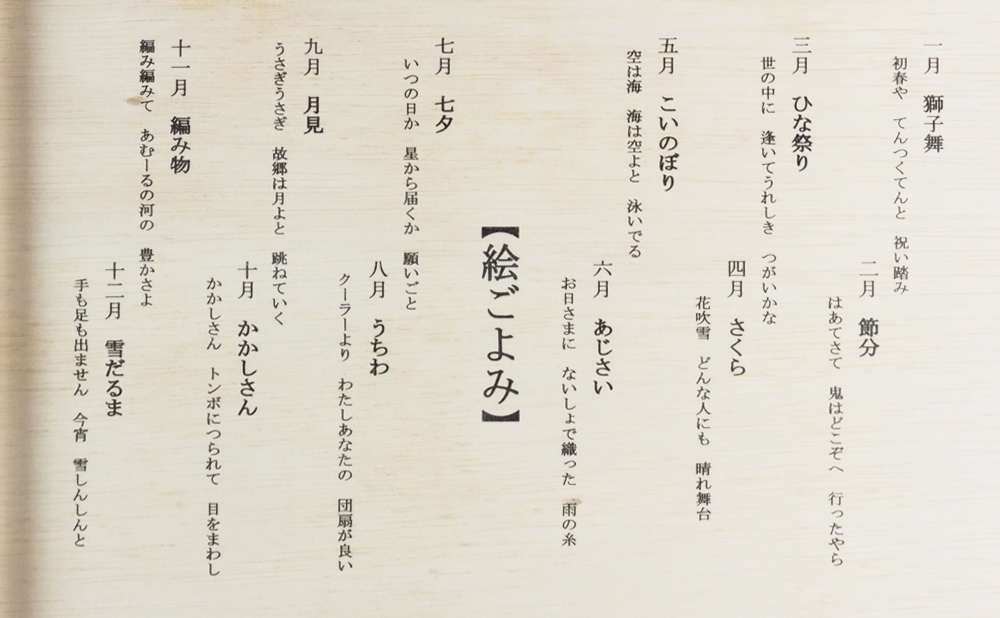 一月　獅子舞
初春や　てんつくてんと　祝い踏み
二月　節分
はあてさて　鬼はどこぞへ　行ったやら
三月　ひな祭り
世の中に　逢いてうれしき　つがいかな
四月　さくら
花吹雪　どんな人にも　晴れ舞台
五月　こいのぼり
空は海　海は空よと　泳いでる
六月　あじさい
お日さまに　ないしょで織った　雨の糸
【絵ごよみ】
七月　七夕
いつの日か　星から届くか　願いごと
八月　うちわ
クーラーより　わたしあなたの　団扇が良い
九月　月見
うさぎうさぎ　故郷は月よと　跳ねていく
十月　かかしさん
かかしさん　トンボにつられて　目をまわし
十一月　編み物
編み編みて　あむーるの河の　豊かさよ
十二月　雪だるま
手も足も出ません　今宵　雪しんしんと